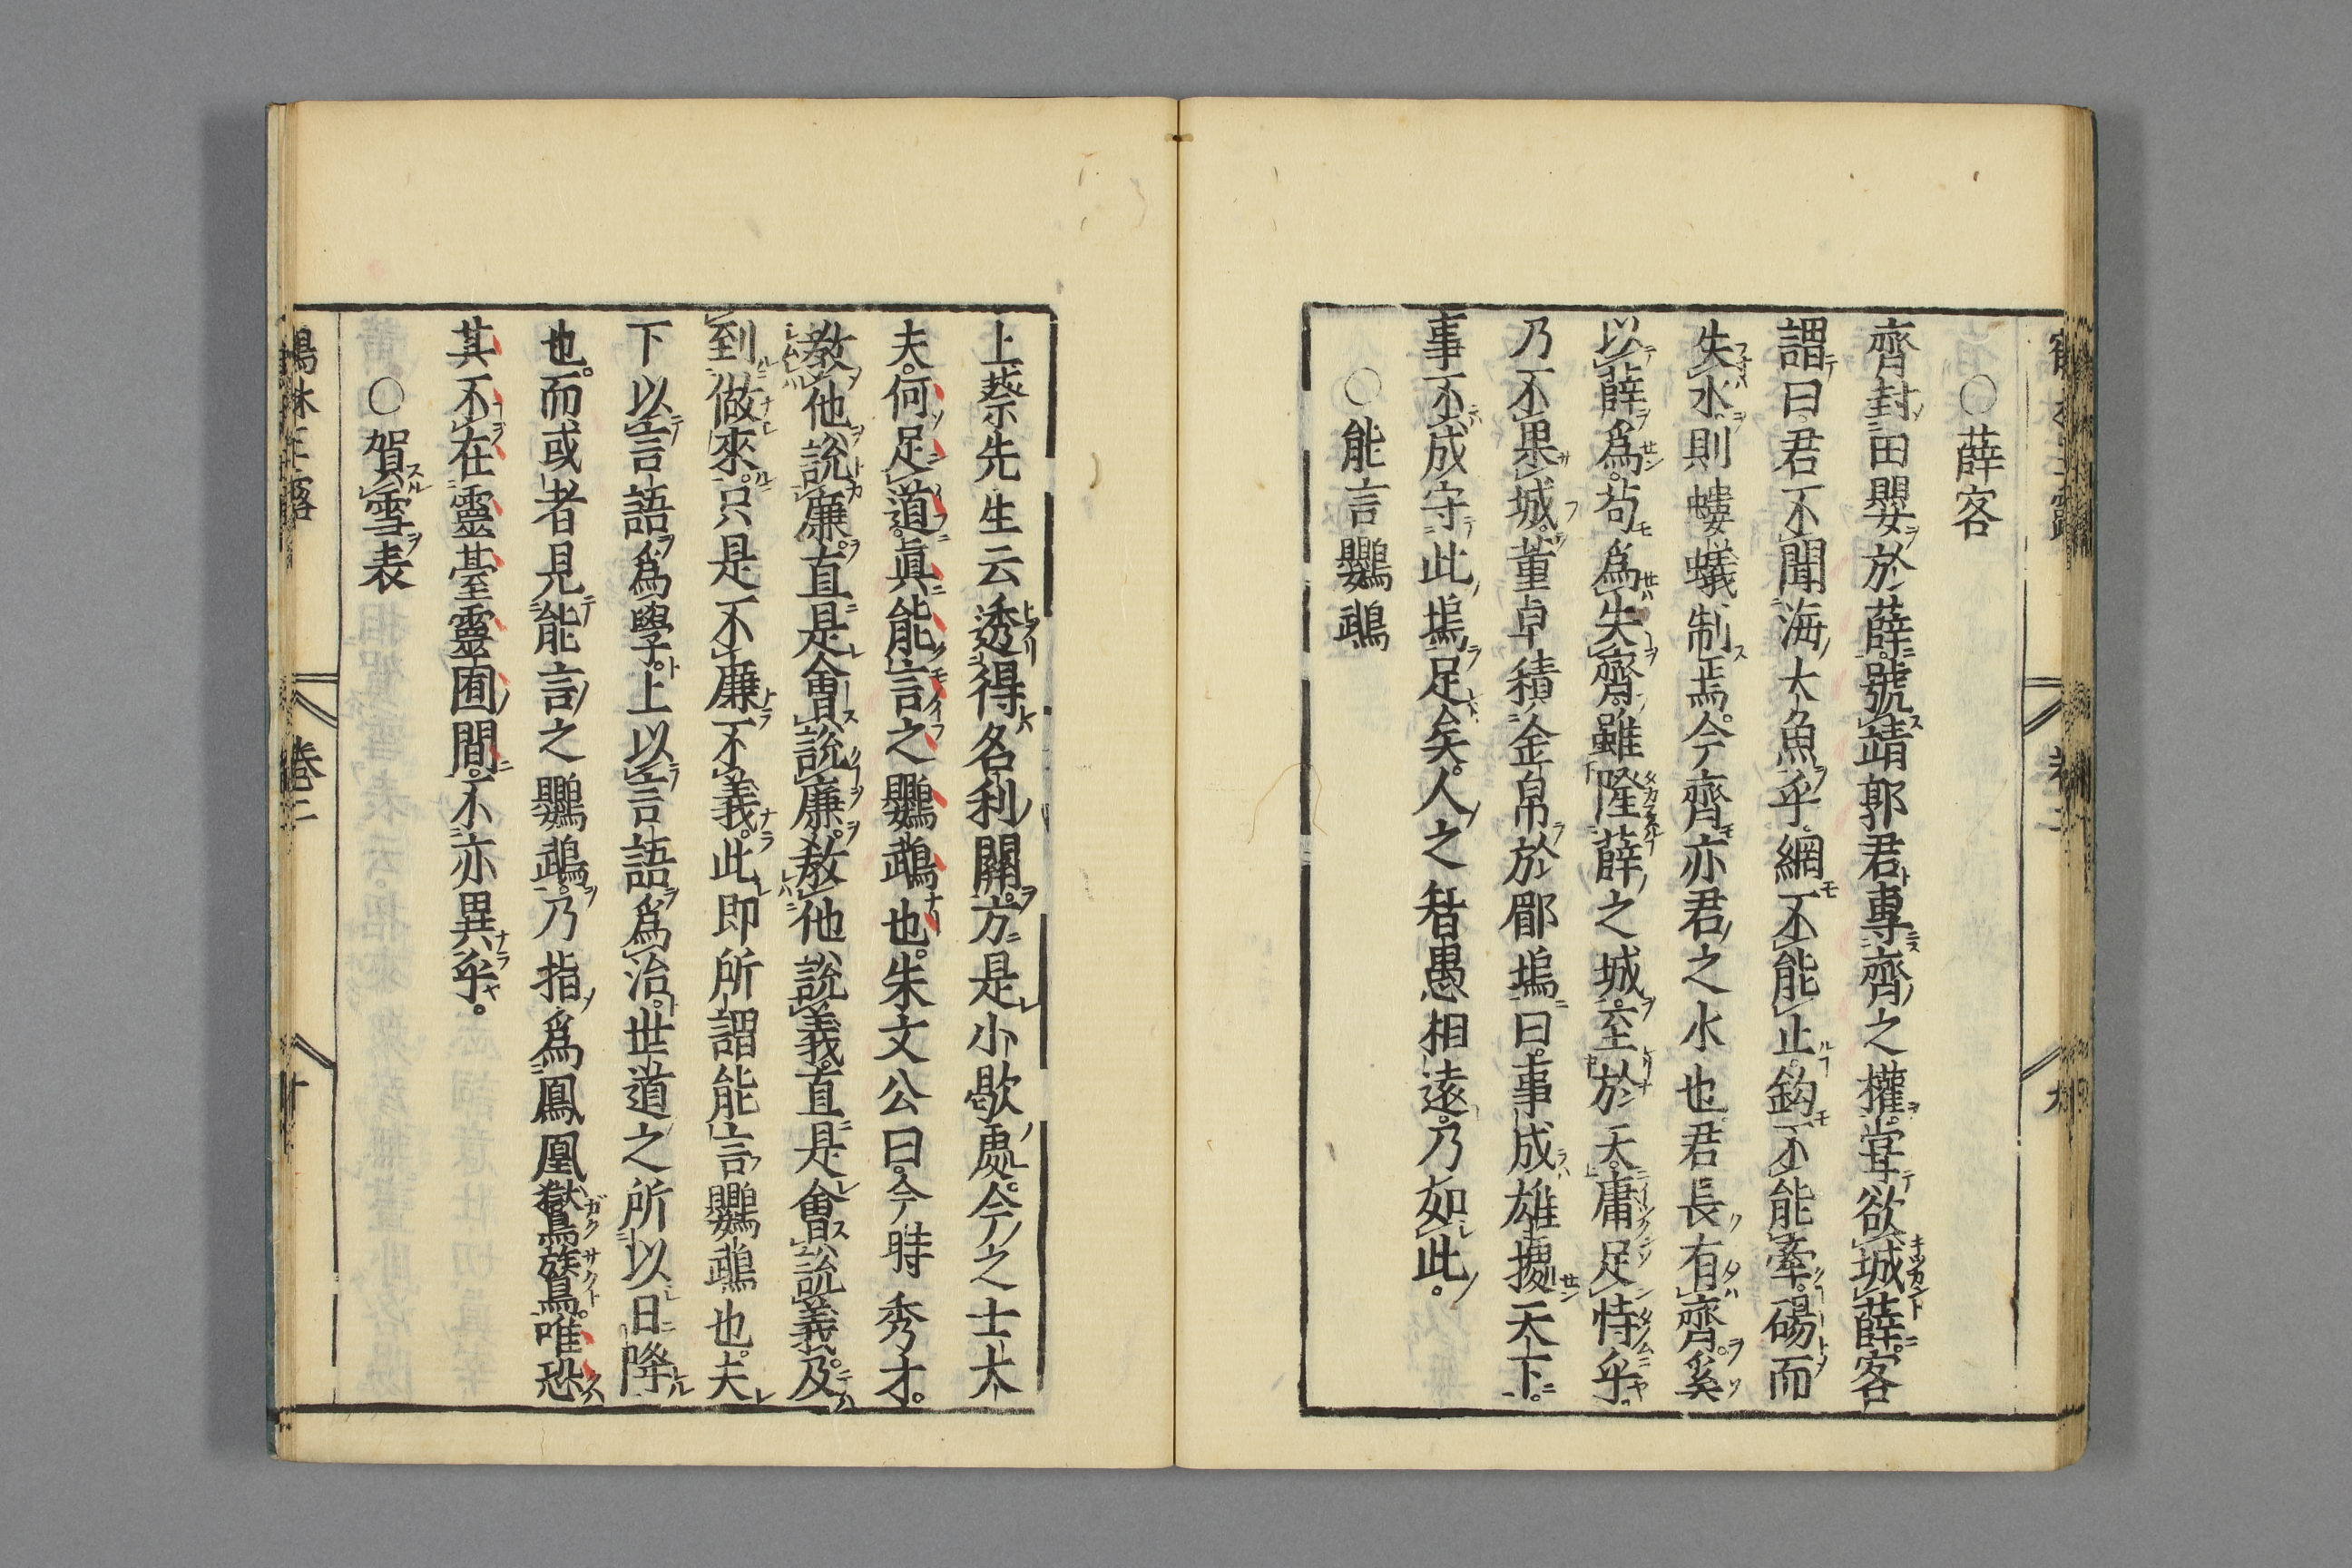 ○薛客
齊封田嬰於薛。號靖郭君專齊之權。甞欲城薛。客
謂曰君不聞海大魚乎網不能止鈎不能牽。碭而
失水則螻蟻制焉。今齊亦君之水也君長有齊。奚
以薛爲。苟爲失齊。雖隆薛之城。至於天。庸足恃乎。
乃不果城。董卓積金帛於郿塢曰。事成雄據天下。
事不成守此塢足矣。人之智愚相遠。乃如此。
○能言鸚鵡
上蔡先生云透得名利關。方是小歇處。今之士大
夫。何足道。眞能言之鸚鵡也。朱文公曰。今時秀才。
教他說廉。直是會說廉。教他說義。直是會說義。及
到做來。只是不廉不義。此即所謂能言鸚鵡也。夫
下以言語爲學。上以言語爲治。世道之所以日降
也。而或者見能言之鸚鵡。乃指爲鳳凰鸑鷟。唯恐
其不在靈臺靈囿間。不亦異乎。
○賀雪表
卷二